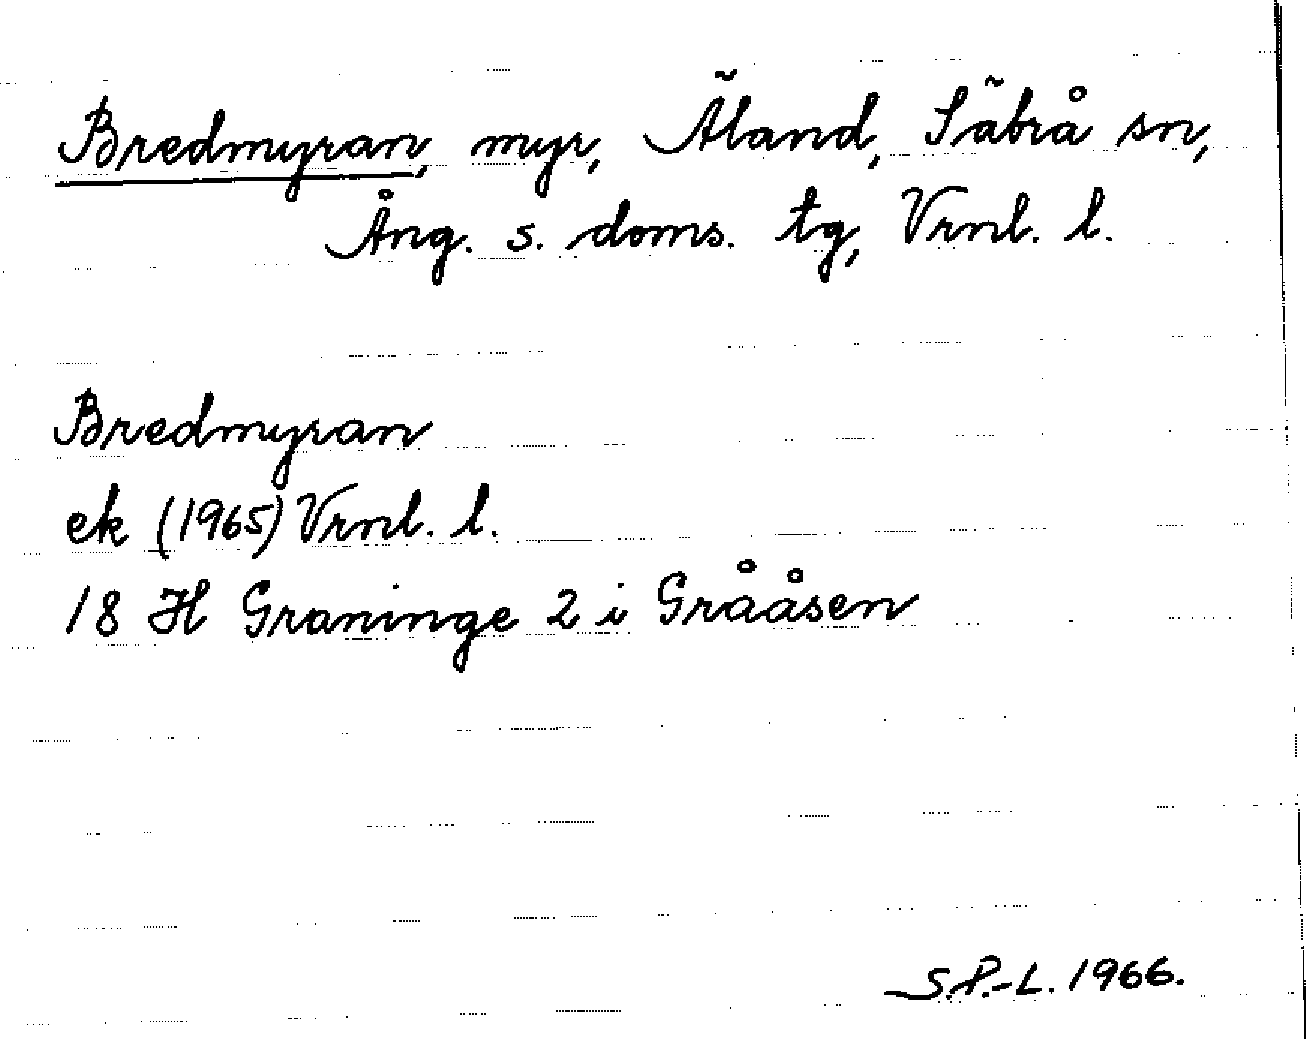 Bredmyran, myr, Äland, Säbrå sn,
Ång. s. doms. tg, Vrnl. l.
Bredmyran
ek (1965) Vrnl. l.
18 H Graninge 2 i Grååsen
S.P.-L. 1966.